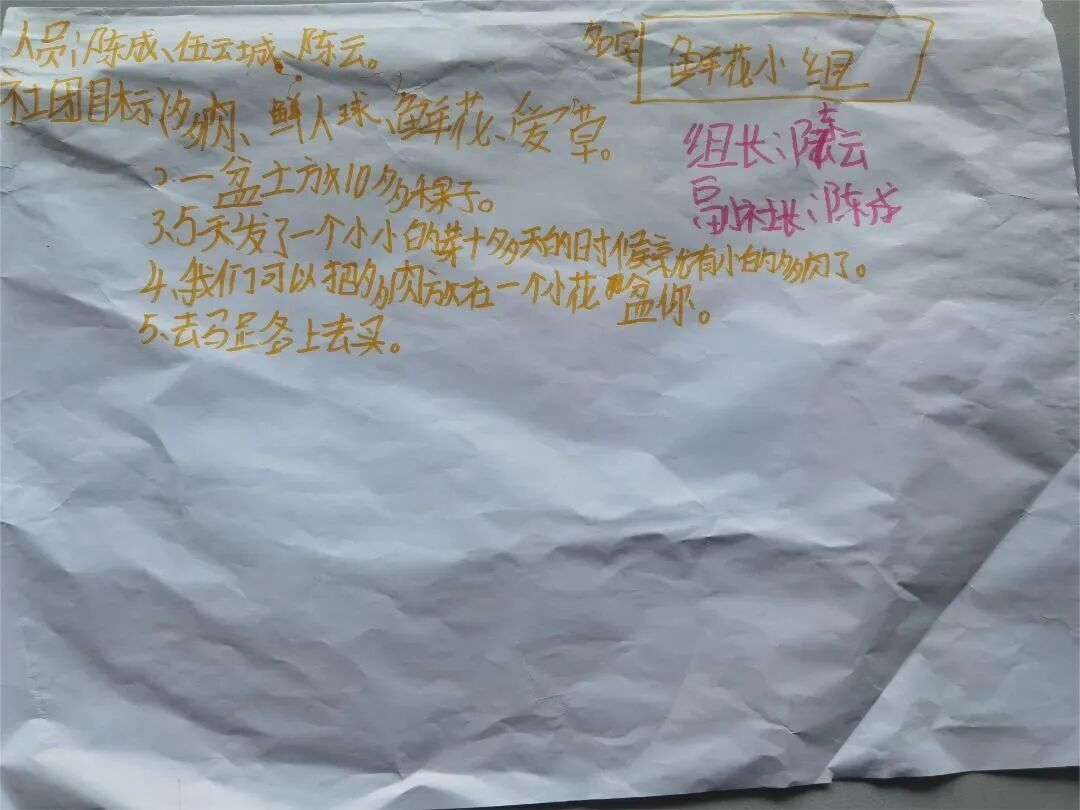 人员:陈成、伍云城、陈云。
名字 鲜花小组
社团目标:多肉、鲜人球、鲜花、爱草。
组长:陈云
副社长:陈成
2.一盆土放10多棵子。
3.5天发了一个小小白的芽十多天的时候就有小白的多肉了。
4、我们可以把多肉放在一个小花盆你。
5、去马足各上去买。